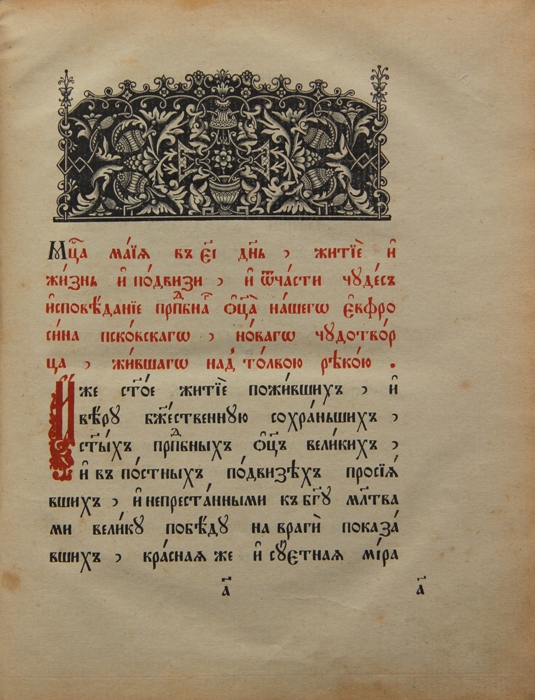 Мцⷭ҇а ма́їѧ въ є҃і дн҃ь , житїѐ и҆
жи́знь и҆ по́двизи , и҆ ѿча́сти чꙋде́съ
и҆сповѣ́данїе прпⷣбнагѡ ѻ҆ц҃а̀ на́шегѡ є҆ѵфро
си́на пско́вскагѡ , но́вагѡ чꙋдотво́р
ца , жи́вшагѡ над̾ то́лвою рѣко́ю .
И҆́же ст҃о́е житїѐ пожи́вшихъ , и҆
вѣ́рꙋ бж҃е́ственнꙋю сохра́ньшихъ ,
ст҃ы́хъ прпⷣбныхъ ѻ҆ц҃ъ вели́кихъ ,
и҆ въ по́стныхъ по́двизѣхъ просїѧ́
вшихъ , и҆ непреста́нными къ бг҃ꙋ мл҃тва
ми вели́кꙋ побѣ́дꙋ на врагѝ показа́
вшихъ , кра́снаѧ же и҆ сꙋ́етнаѧ мі́ра
а҃ а҃